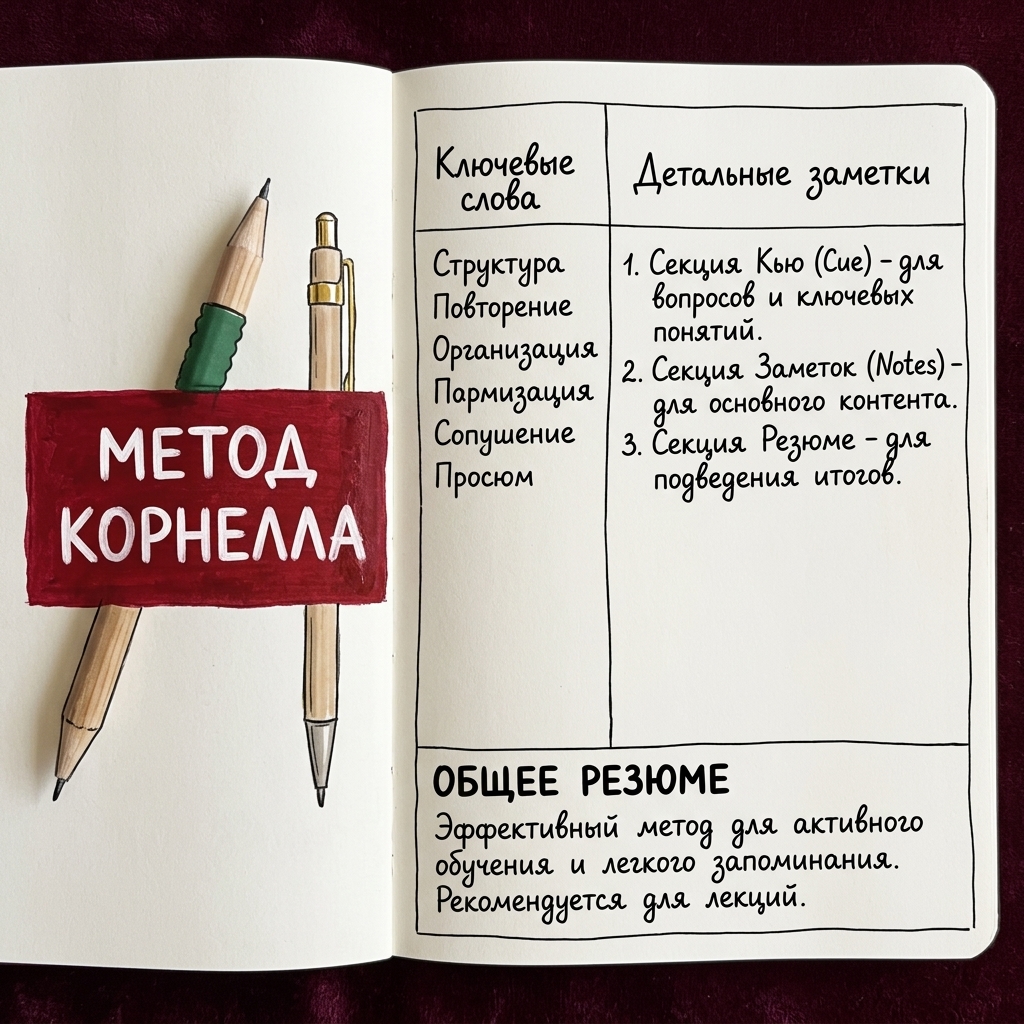 МЕТОД
КОРНЕЛЛА
Ключевые
слова
Детальные заметки
Структура
Повторение
Организация
Пармизация
Сопушение
Просюм
1. Секция Кью (Cue) – для
вопросов и ключевых
понятий.
2. Секция Заметок (Notes) –
для основного контента.
3. Секция Резюме – для
подведения итогов.
ОБЩЕЕ РЕЗЮМЕ
Эффективный метод для активного
обучения и легкого запоминания.
Рекомендуется для лекций.